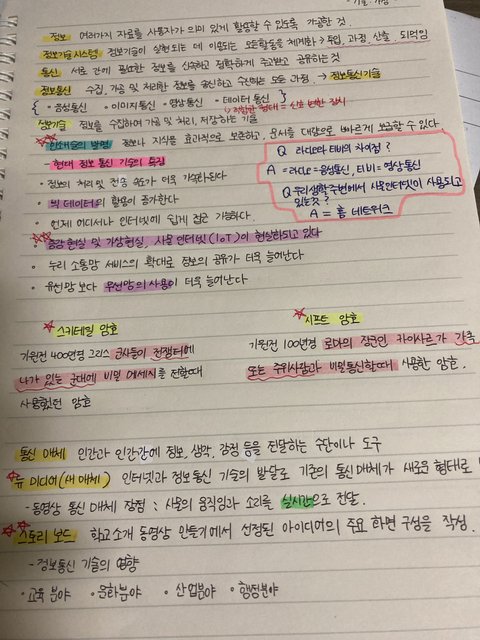 정보 여러가지 자료를 사용자가 의미 있게 활용할 수 있도록 가공한 것.
정보기술시스템 정보기술이 실현되는 데 이용되는 모든활동을 체계화 > 투입, 과정, 산출, 되먹임
통신 서로 간에 필요한 정보를 신속하고 정확하게 주고받고 공유하는 것
정보통신 수집, 가공 및 처리한 정보를 송신하고 수신하는 모든 과정 → 정보통신기술
{ • 음성통신 • 이미지통신 • 영상통신 • 데이터 통신 }
↳ 적합한 형태 = 신호 변환 장치
정보기술 정보를 수집하여 가공 및 처리, 저장하는 기술
인쇄술의 발명 정보나 지식을 효과적으로 보존하고, 문서를 대량으로 빠르게 보급할 수 있다.
• 현대 정보 통신 기술의 특징
• 정보의 처리 및 전송 속도가 더욱 가속화된다
• 빅 데이터의 활용이 증가한다
• 언제 어디서나 인터넷에 쉽게 접근 가능하다.
증강현실 및 가상현실, 사물 인터넷(IoT)이 현실화되고 있다
• 누리 소통망 서비스의 확대로 정보의 공유가 더욱 늘어난다
• 유선망보다 무선망의 사용이 더욱 늘어난다
Q 라디오와 티비의 차이점?
A = 라디오=음성통신, 티비=영상통신
Q 우리생활주변에서 사물인터넷이 사용되고
있는것?
A = 홈 네트워크
스키테일 암호
기원전 400년경 그리스 군사들이 전쟁터에
나가 있는 군대에 비밀 메세지를 전할때
사용했던 암호
시프트 암호
기원전 100년경 로마의 장군인 카이사르가 가족
또는 주위사람과 비밀통신할때 사용한 암호.
통신 매체 인간과 인간간에 정보, 생각, 감정 등을 전달하는 수단이나 도구
뉴 미디어(새 매체) 인터넷과 정보통신 기술의 발달로 기존의 통신매체가 새로운 형태로
- 동영상 통신 매체 장점 : 사물의 움직임과 소리를 실시간으로 전달.
스토리 보드 학교소개 동영상 만들기에서 선정된 아이디어의 주요 화면 구성을 작성.
- 정보통신 기술의 영향
• 교육 분야 • 문화분야 • 산업분야 • 행정분야